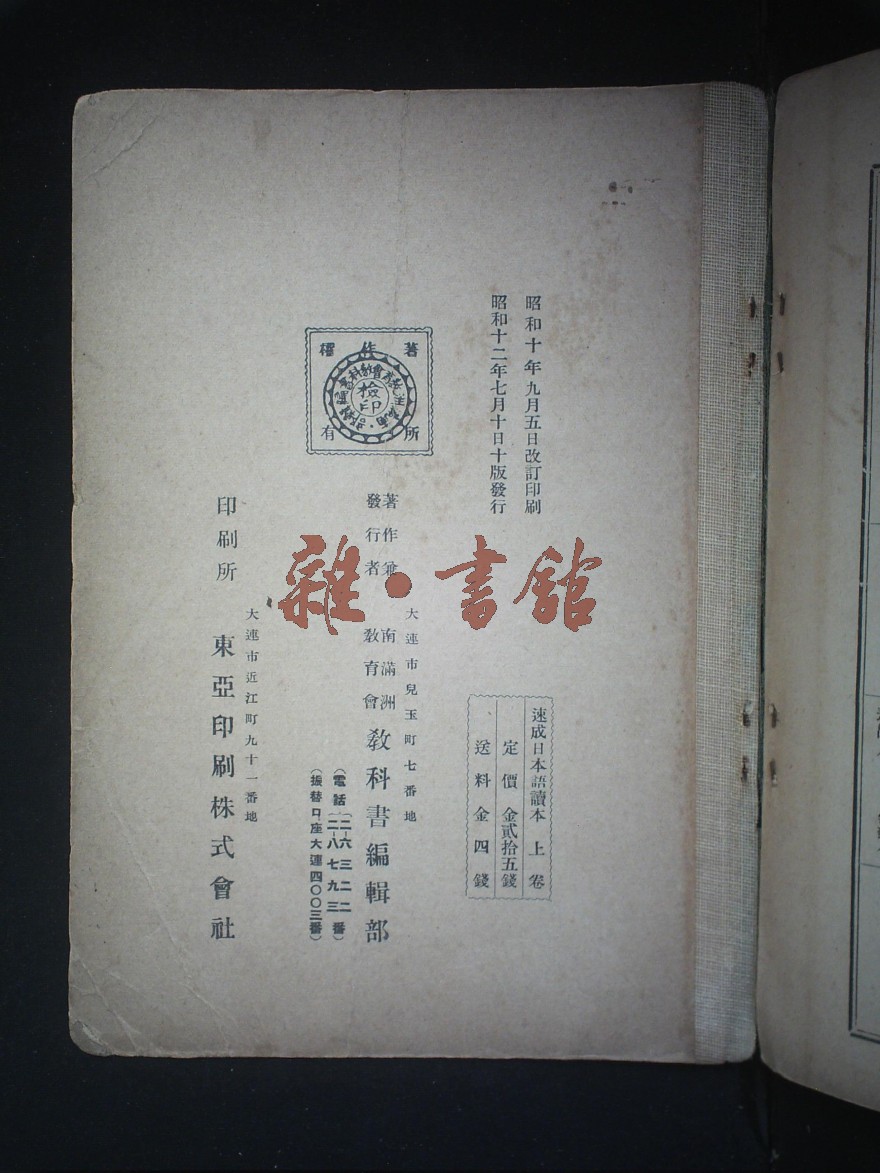 昭和十年九月五日改訂印刷
昭和十二年七月十日十版發行
速成日本語讀本 上卷
定價 金貳拾五錢
送料 金四錢
著作權
所有
檢印
大連市兒玉町七番地
著作兼
發行者
南滿洲
敎育會
敎科書編輯部
(電話 二-六三二二
二-八七九三 番)
(振替口座大連四〇〇三番)
大連市近江町九十一番地
印刷所 東亞印刷株式會社
雜·書館